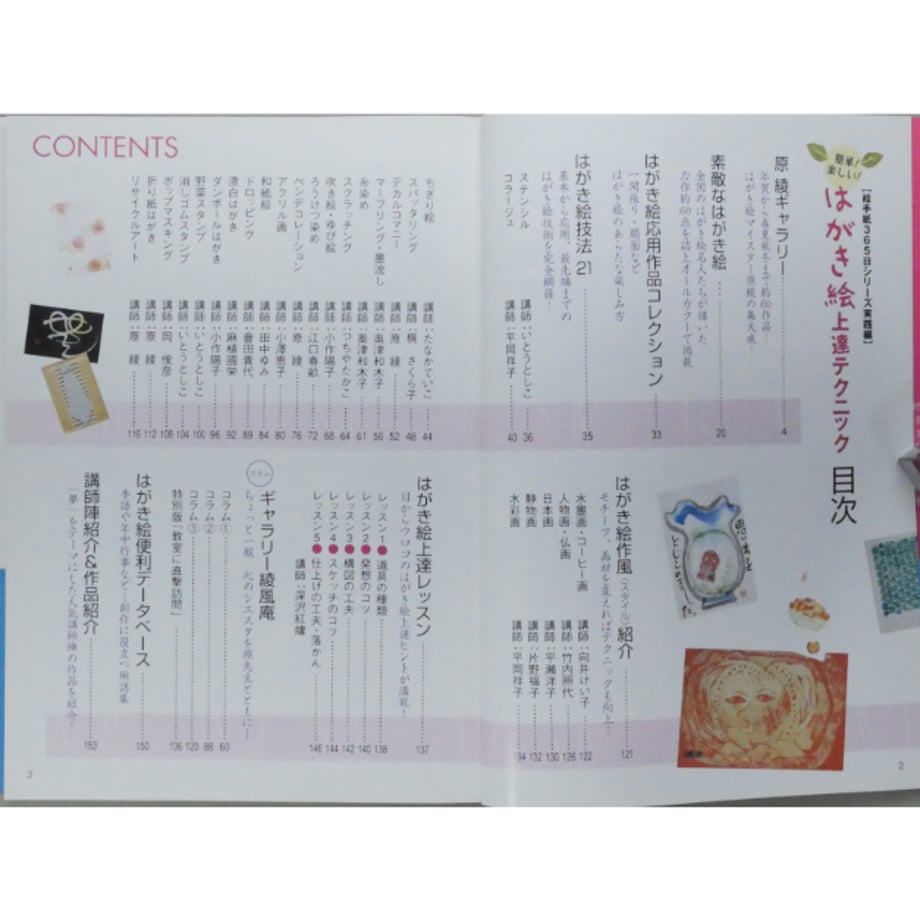 【絵手紙365日シリーズ実践編】
簡単!
楽しい!
はがき絵上達テクニック 目次
原 綾ギャラリー 4
年賀から春夏秋冬まで約60作品!
はがき絵マイスター原綾の集大成!
素敵なはがき絵 20
全国のはがき絵名人たちが描いた、
力作約60点を誌上オールカラーで掲載
はがき絵応用作品コレクション 33
一閑張り・扇面など
はがき絵のあらたな楽しみ方
はがき絵技法 21 35
基本から応用、最先端までの
はがき絵技術を完全網羅!
ステンシル 講師:いとうとしこ 36
コラージュ 講師:平岡祥子 40
CONTENTS
ちぎり絵 講師:たなかていこ 44
スパッタリング 講師:梶 さくら子 48
デカルコマニー 講師:原 綾 52
マーブリング・墨流し 講師:奥津和木子 56
糸染め 講師:奥津和木子 61
スクラッチング 講師:つちやたかこ 64
吹き絵・ゆび絵 講師:小作陽子 68
ろうけつ染め 講師:江口春畝 72
ペンデコレーション 講師:原 綾 76
アクリル画 講師:小澤恵子 80
和紙絵 講師:田中ゆみ 84
ドロッピング 講師:會田貴代 89
漂白はがき 講師:麻植陽栄 92
ダンボールはがき 講師:小作陽子 96
野菜スタンプ 講師:いとうとしこ 100
消しゴムスタンプ 講師:いとうとしこ 104
ポップマスキング 講師:岡 俊彦 108
折り紙はがき 講師:原 綾 112
リサイクルアート 講師:原 綾 116
はがき絵作風〈スタイル〉紹介 121
モチーフ、画材を変えればテクニックも向上!
水墨画・コーヒー画 講師:向井けい子 122
人物画・仏画 講師:竹内照代 126
日本画 講師:平瀬洋子 130
静物画 講師:片野福子 132
水彩画 講師:平岡祥子 134
はがき絵上達レッスン 137
目からウロコのはがき絵上達ヒントが満載!
レッスン1●道具の種類 138
レッスン2●発想のコツ 140
レッスン3●構図の工夫 142
レッスン4●スケッチのコツ 144
レッスン5●仕上げの工夫・落かん 146
講師:深沢紅爐
コラム
ギャラリー綾風庵
ちょっと一服、心のシエスタを原先生とともに…
コラム① 60
コラム② 88
コラム③ 120
特別版「教室に直撃訪問」 136
はがき絵便利データベース 150
季語や年中行事など…創作に役立つ用語集
講師陣紹介&作品紹介 153
「夢」をテーマにした人気講師陣の作品を紹介!
3
2